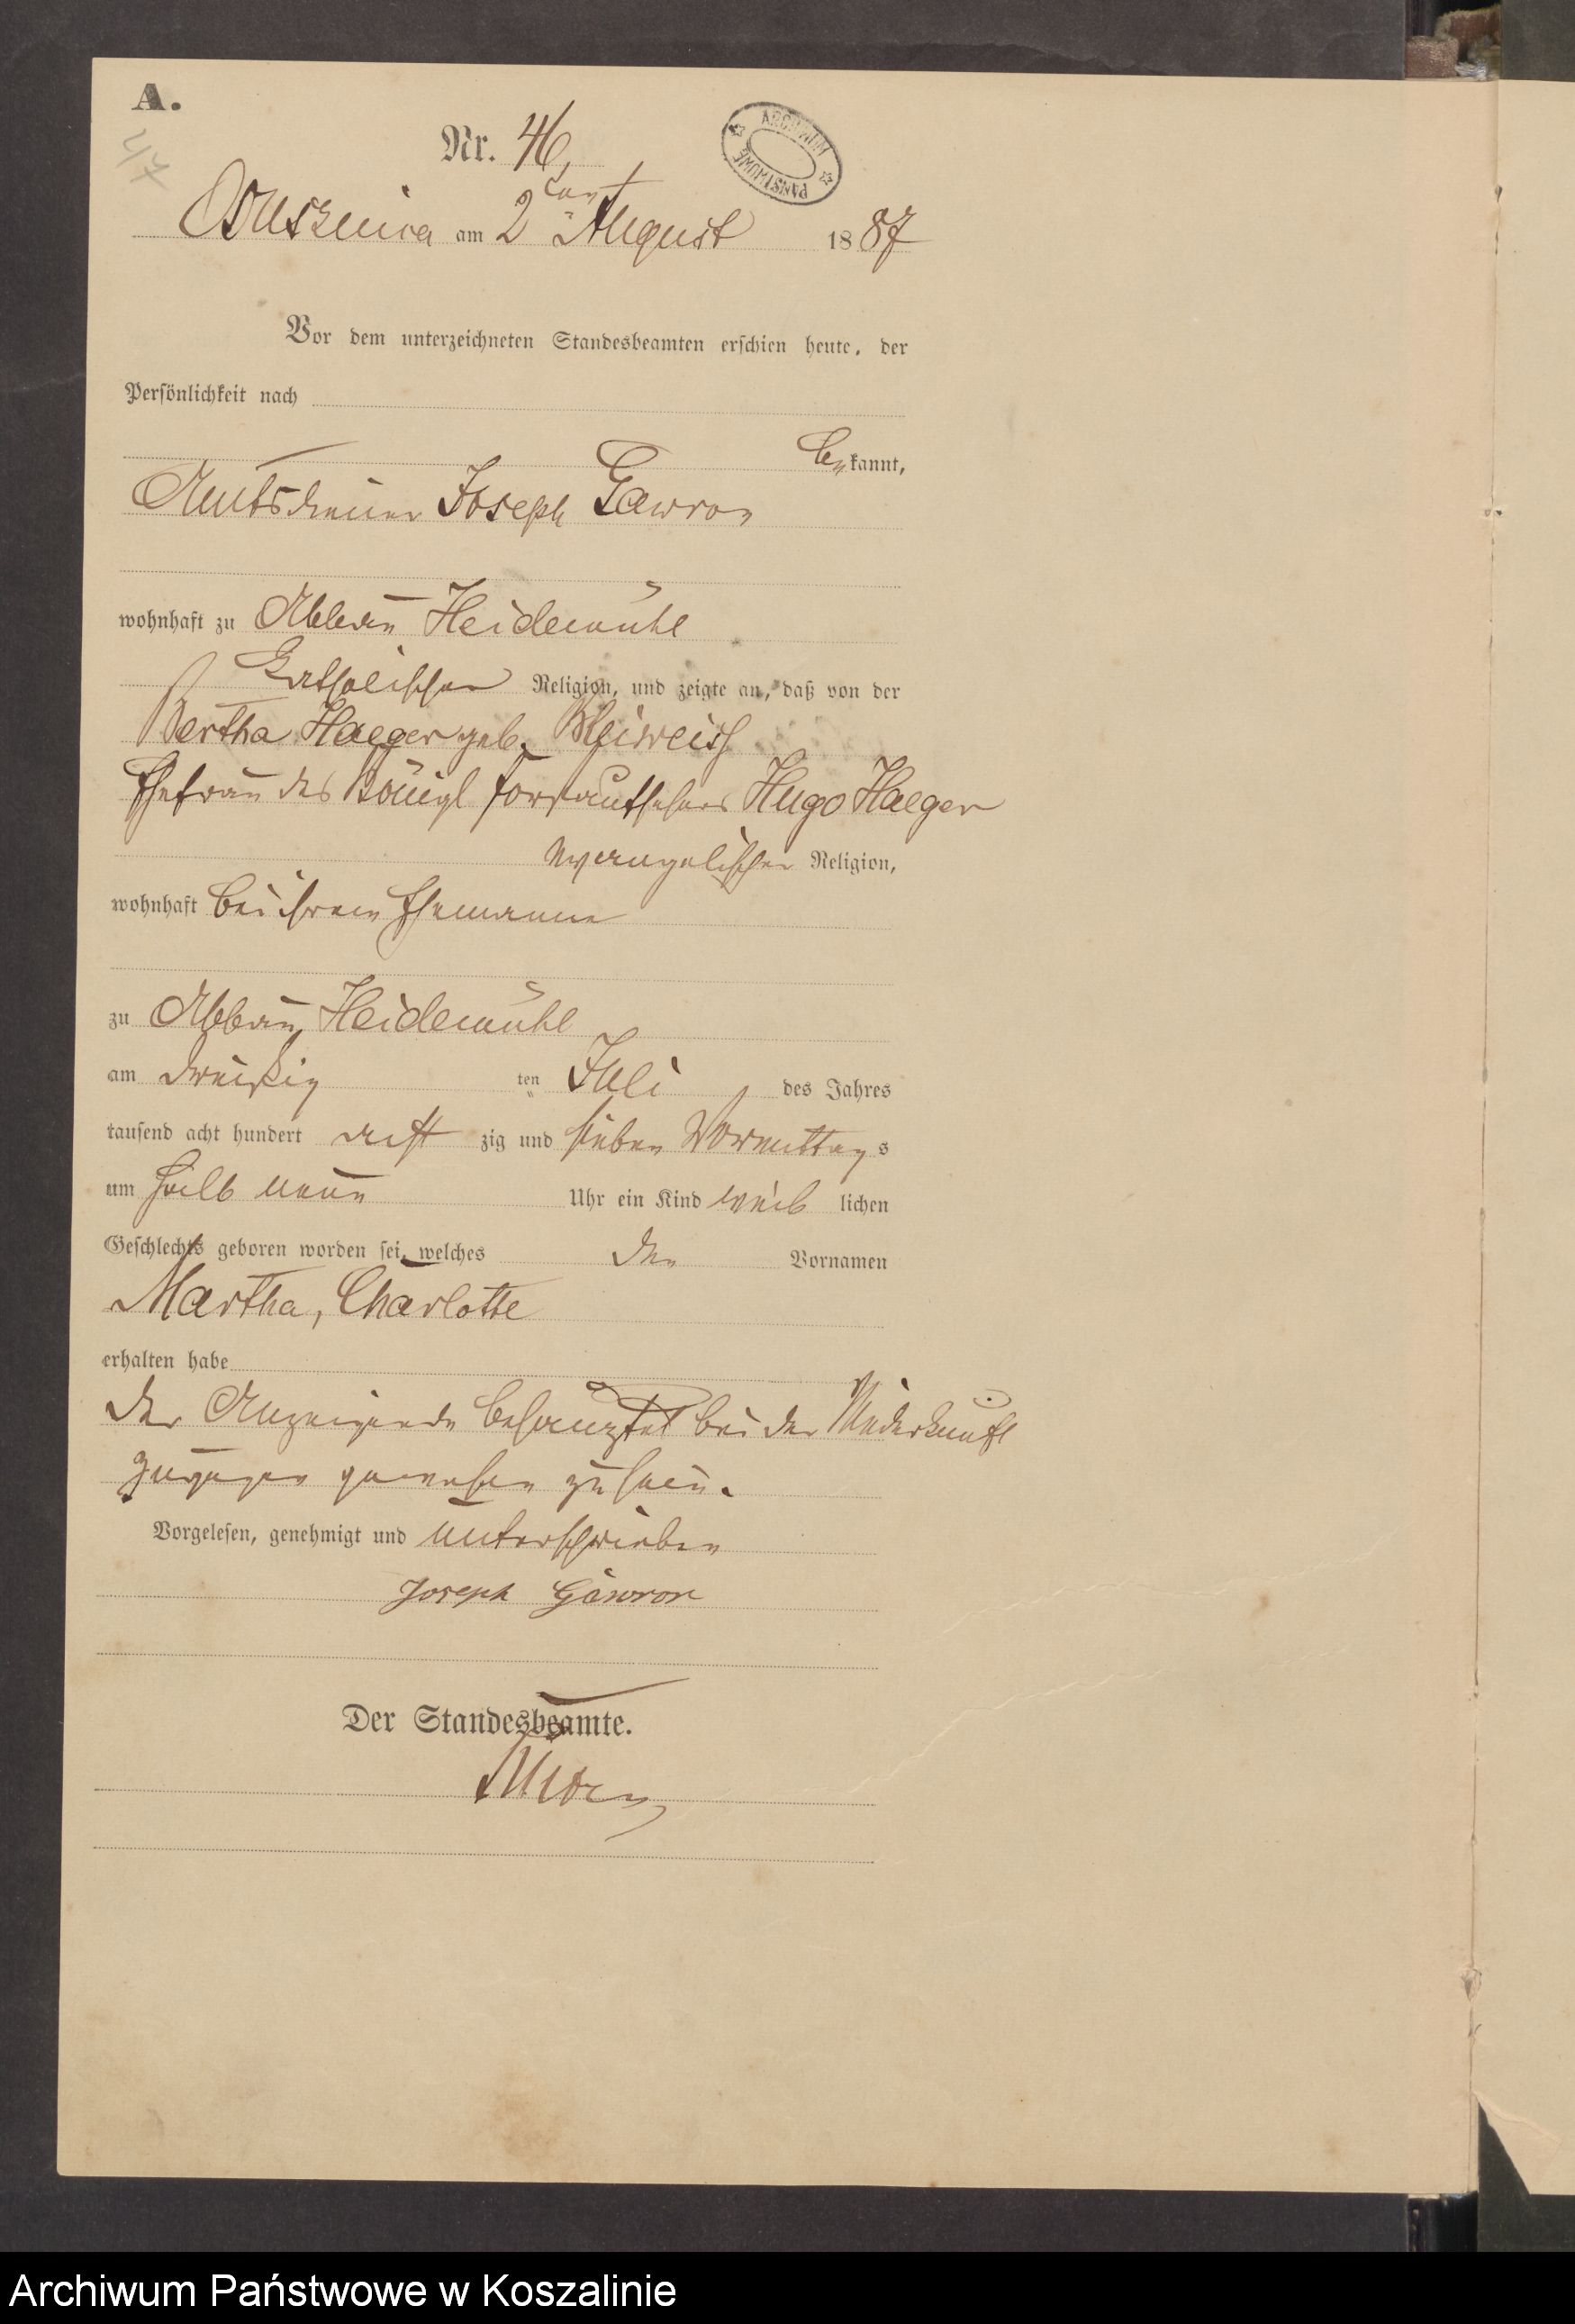 A.
47
Nr. 46.
ARCHIWUM PAŃSTWOWE
Ossusznica am 2ten August 1887
Vor dem unterzeichneten Standesbeamten erschien heute, der
Persönlichkeit nach
be kannt,
Amtsdiener Joseph Gawron
wohnhaft zu Abbau Heidemühl
katholischer Religion, und zeigte an, daß von der
Bertha Haeger geb. Bleiweiss
Ehefrau des Königl Forstaufsehers Hugo Haeger
evangelischer Religion,
wohnhaft bei ihrem Ehemanne
zu Abbau Heidemühl
am dreißig ten Juli des Jahres
tausend acht hundert acht zig und sieben Vormittag s
um halb neun Uhr ein Kind weib lichen
Geschlechts geboren worden sei, welches den Vornamen
Martha, Charlotte
erhalten habe
der Anzeigende behauptet bei der Niederkunft
zugegen gewesen zu sein.
Vorgelesen, genehmigt und unterschrieben
Joseph Gawron
Der Standesbeamte.
Archiwum Państwowe w Koszalinie